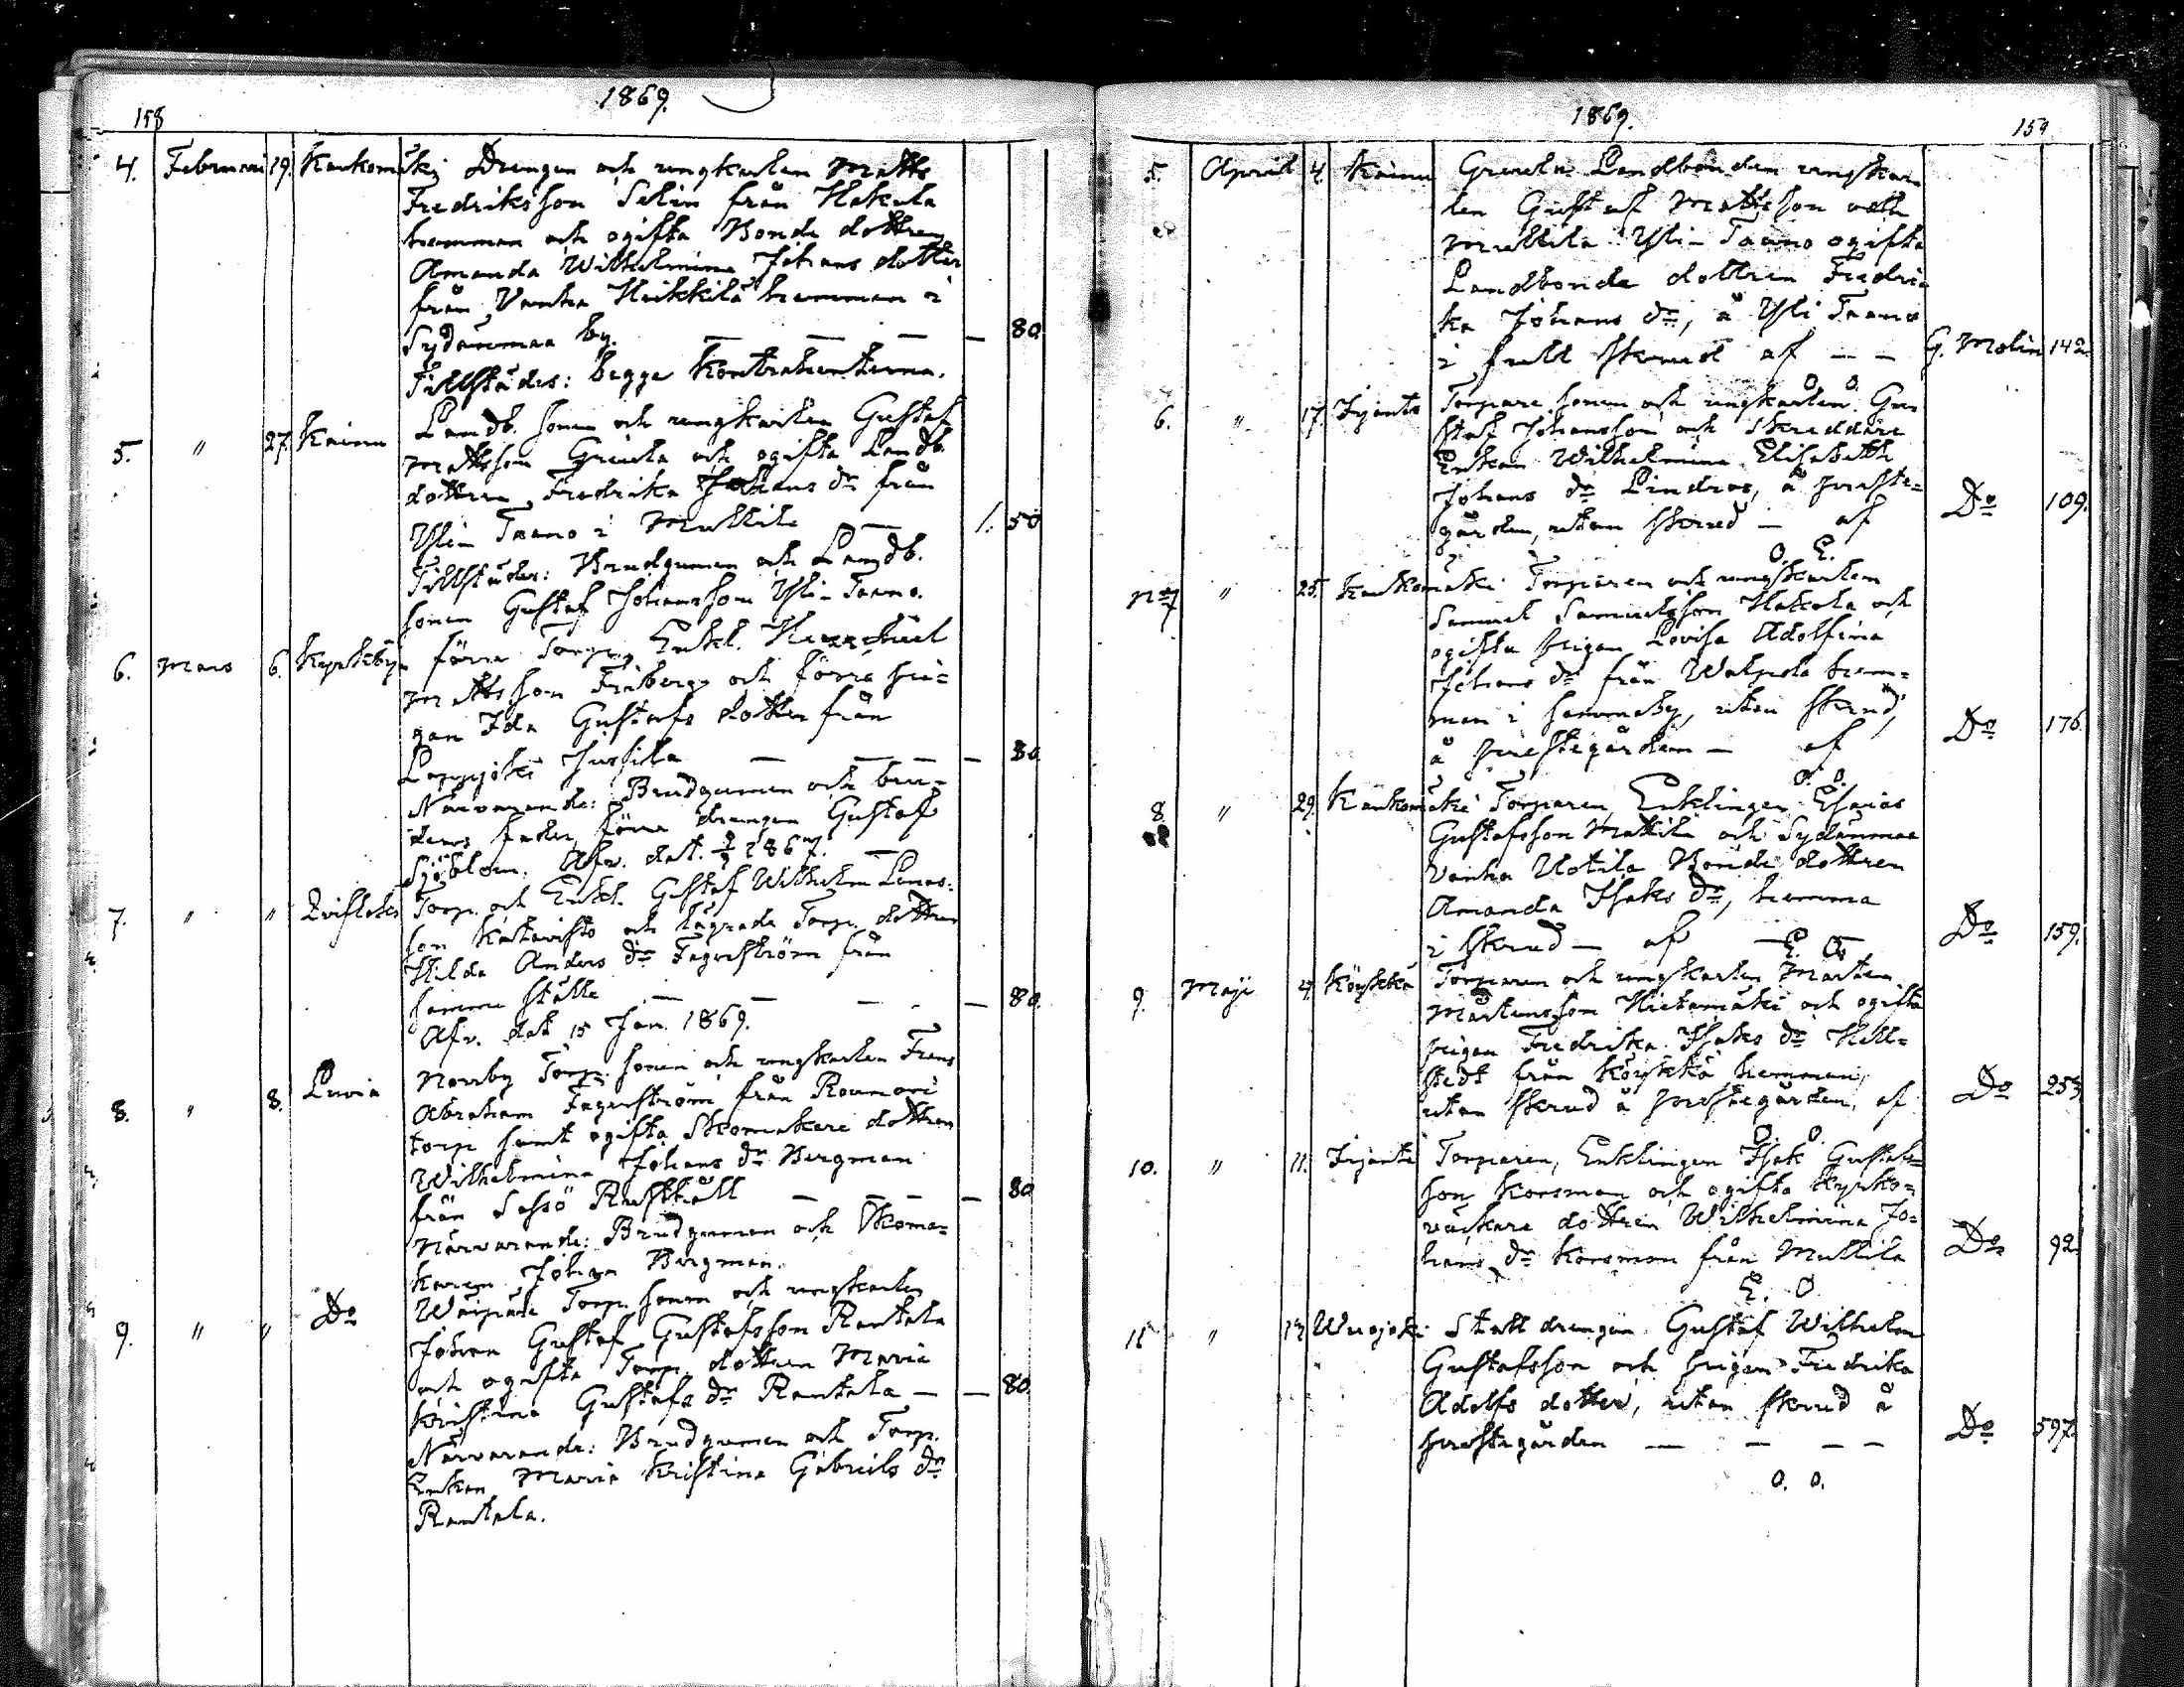 158
1869.
4. Februari 19. Kaukomäki Drengen och ungkarlen Matts
Fredriksson Selin från Hakula
hemman och ogifta Bonde dottren
Amanda Wilhelmina Johans dotter
från Vanha Heikkilä hemman i
Sydänmaa by. — — — — 80.
Tillstädes: begge Kontrahenterna.
5. " 27. Kainu Landb. sonen och ungkarlen Gustaf
Mattsson Greula och ogifta Landb.
dottren Fredrika Johans dr från
Yli-Taano i Mullila — 1. 50
Tillstädes: Brudgumen och Landb.
sonen Gustaf Johansson Yli-Taano.
6. Mars 6. förra Torp. Enkl.
Mattsson Friberg och förra pi-
gan Ida Gustafs dotter från
Jussila — — — — 80.
Närvarande: Brudgumen och bru-
dens fader, förra drengen Gustaf
Sjöblom. Afv. dat. 1867.
7. " " Torp. och Enkl. Gustaf Wilhelm
son och Torp. dottren
Hilda Anders dr Fagerström från
samma ställe — — — — 80.
Afv. dat 15 Jan. 1869.
8. " 8. Luvia Norrby Torp. sonen och ungkarlen Frans
Abraham Fagerström från
torp samt ogifta Skomakare dottren
Wilhelmina Johans dr Bergman
från Sassö Rusthåll — — — — 80
Närvarande: Brudgumen och Skoma-
karen Johan Bergman.
9. " " Do Torp. sonen och ungkarlen
Johan Gustaf Gustafsson Rantala
och ogifta Torp. dottren Maria
Kristina Gustafs dr Rantala — — 80.
Närvarande: Brudgumen och Torp.
Enkan Maria Kristina Gabriels dr
Rantala.
1869.
159
5. April 4. Kainu Greula Landbonden ungkar-
len Gustaf Mattsson och
Mullila Yli-Taano ogifta
Landbonde dottren Fredri-
ka Johans dr, å Yli Taano
i full skrud af — — G. Molin 142.
O. O.
6. " 17. Irjanto Torpare sonen och ungkarlen Gu-
staf Johansson och Skreddare
Enkan Wilhelmina Elisabeth
Johans dr Lindros, å preste-
gården, utan skrud — af Do 109.
O. E.
No 7 " 25. Kaukomäki Torparen och ungkarlen
Samuel Samuelsson Hakola och
ogifta pigan Lovisa Adolfina
Johans dr från hem-
man i samma by, utan skrud,
å prestegården — af Do 176.
O. O.
8. " 29. Kaukomäki Torparen, Enklingen Esaias
Gustafsson Mattila och Sydänmaa
Vanha Uotila Bonde dottren
Amanda Isaks dr, hemma
i skrud — af — Do 159.
E. O.
9. Maji 4. Köykkä Torparen och ungkarlen Mårten
Mårtensson Hietamäki och ogifta
pigan Fredrika Isaks dr Hell-
stedt från Köykkä hemman,
utan skrud å prestegården, af Do 253
O. O.
10. " 11. Irjanti Torparen, Enklingen Isak Gustafs-
son Korsman och ogifta Kyrko-
väktare dottren Wilhelmina Jo-
hans dr Korsman från Mullila Do 92.
E. O
" Wuojoki Stall drengen Gustaf Wilhelm
Gustafsson och pigan Fredrika
Adolfs dotter, utan skrud å
prestegården — — — — Do 597.
O. O.